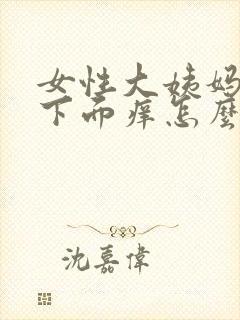 女性大姨妈
下面痒怎麼
沈嘉偉